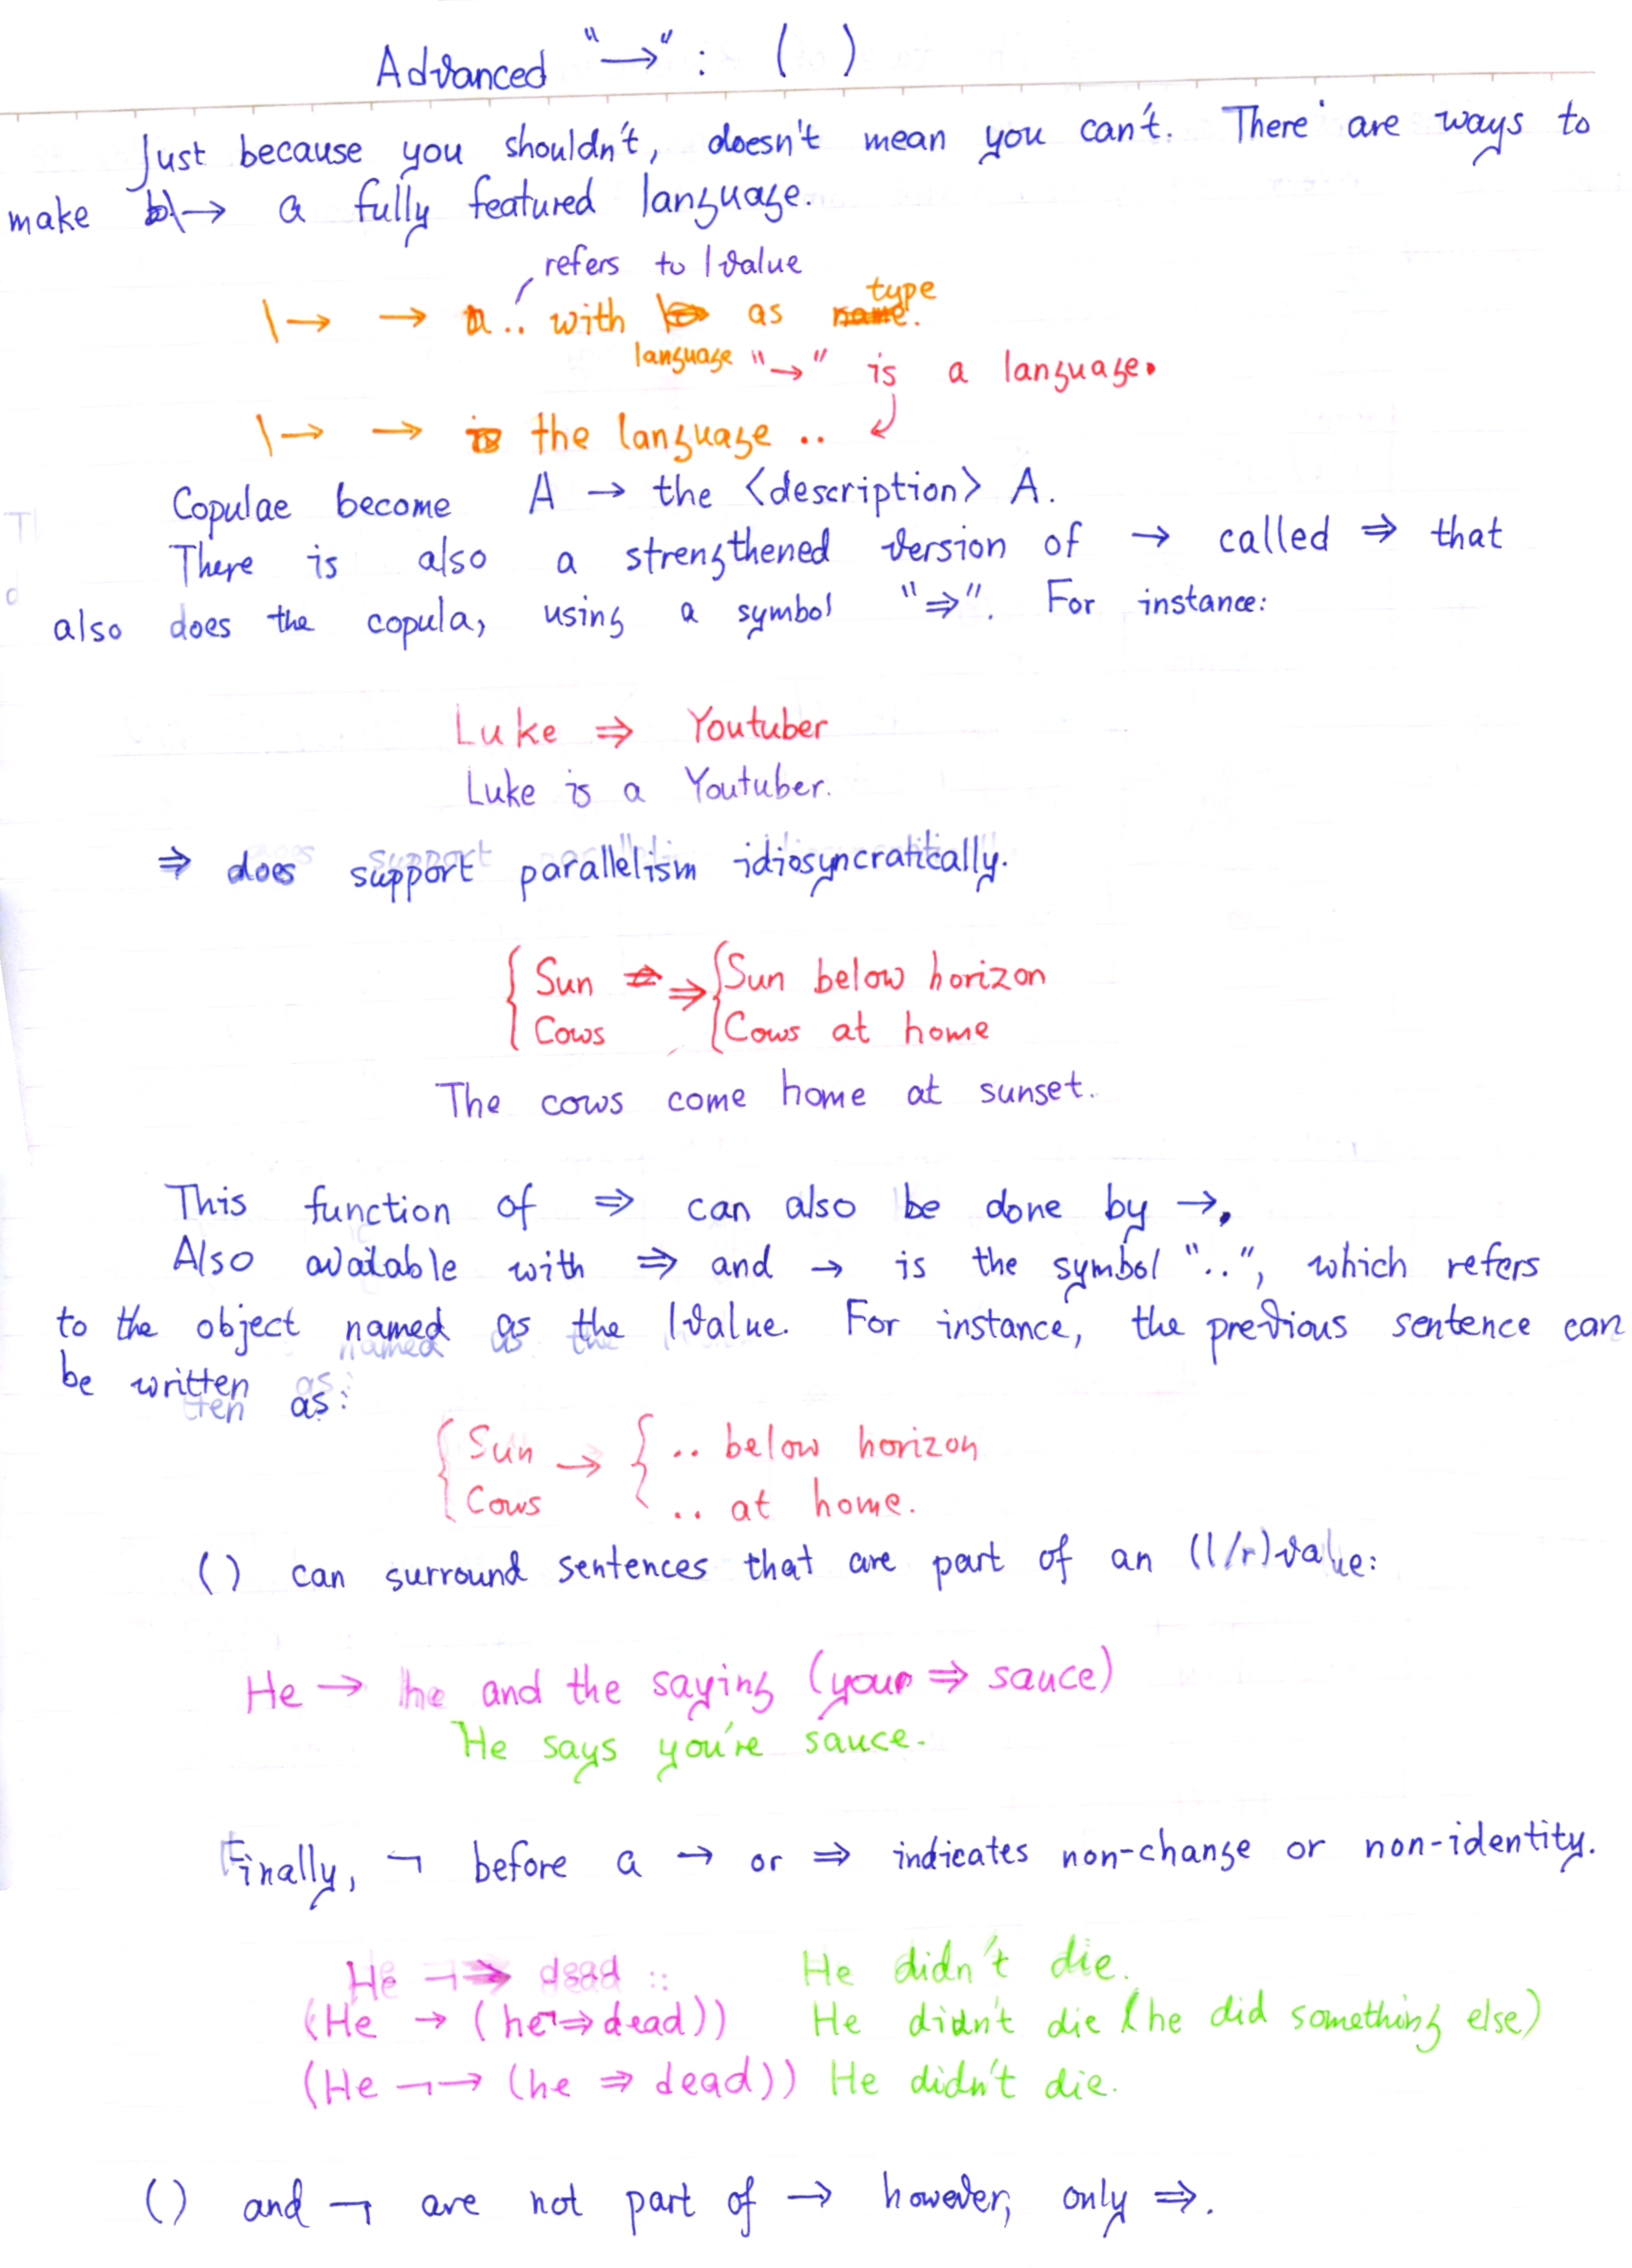 Advanced "→": ( )
Just because you shouldn't, doesn't mean you can't. There are ways to
make \→ a fully featured language.
refers to lvalue
\→ → .. with as type
language "→" is a language.
\→ → the language ..
Copulae become A → the <description> A.
There is also a strengthened version of → called ⇒ that
also does the copula, using a symbol "⇒". For instance:
Luke ⇒ Youtuber
Luke is a Youtuber.
⇒ does support parallelism idiosyncratically.
{ Sun ⇒ { Sun below horizon
Cows Cows at home
The cows come home at sunset.
This function of ⇒ can also be done by →.
Also available with ⇒ and → is the symbol "..", which refers
to the object named as the lvalue. For instance, the previous sentence can
be written as:
{ Sun → { .. below horizon
Cows .. at home.
() can surround sentences that are part of an (l/r)value:
He → he and the saying (your ⇒ sauce)
He says you're sauce.
Finally, ¬ before a → or ⇒ indicates non-change or non-identity.
He ¬⇒ dead :: He didn't die.
(He → (he¬⇒dead)) He didn't die (he did something else)
(He ¬→ (he ⇒ dead)) He didn't die.
() and ¬ are not part of → however, only ⇒.